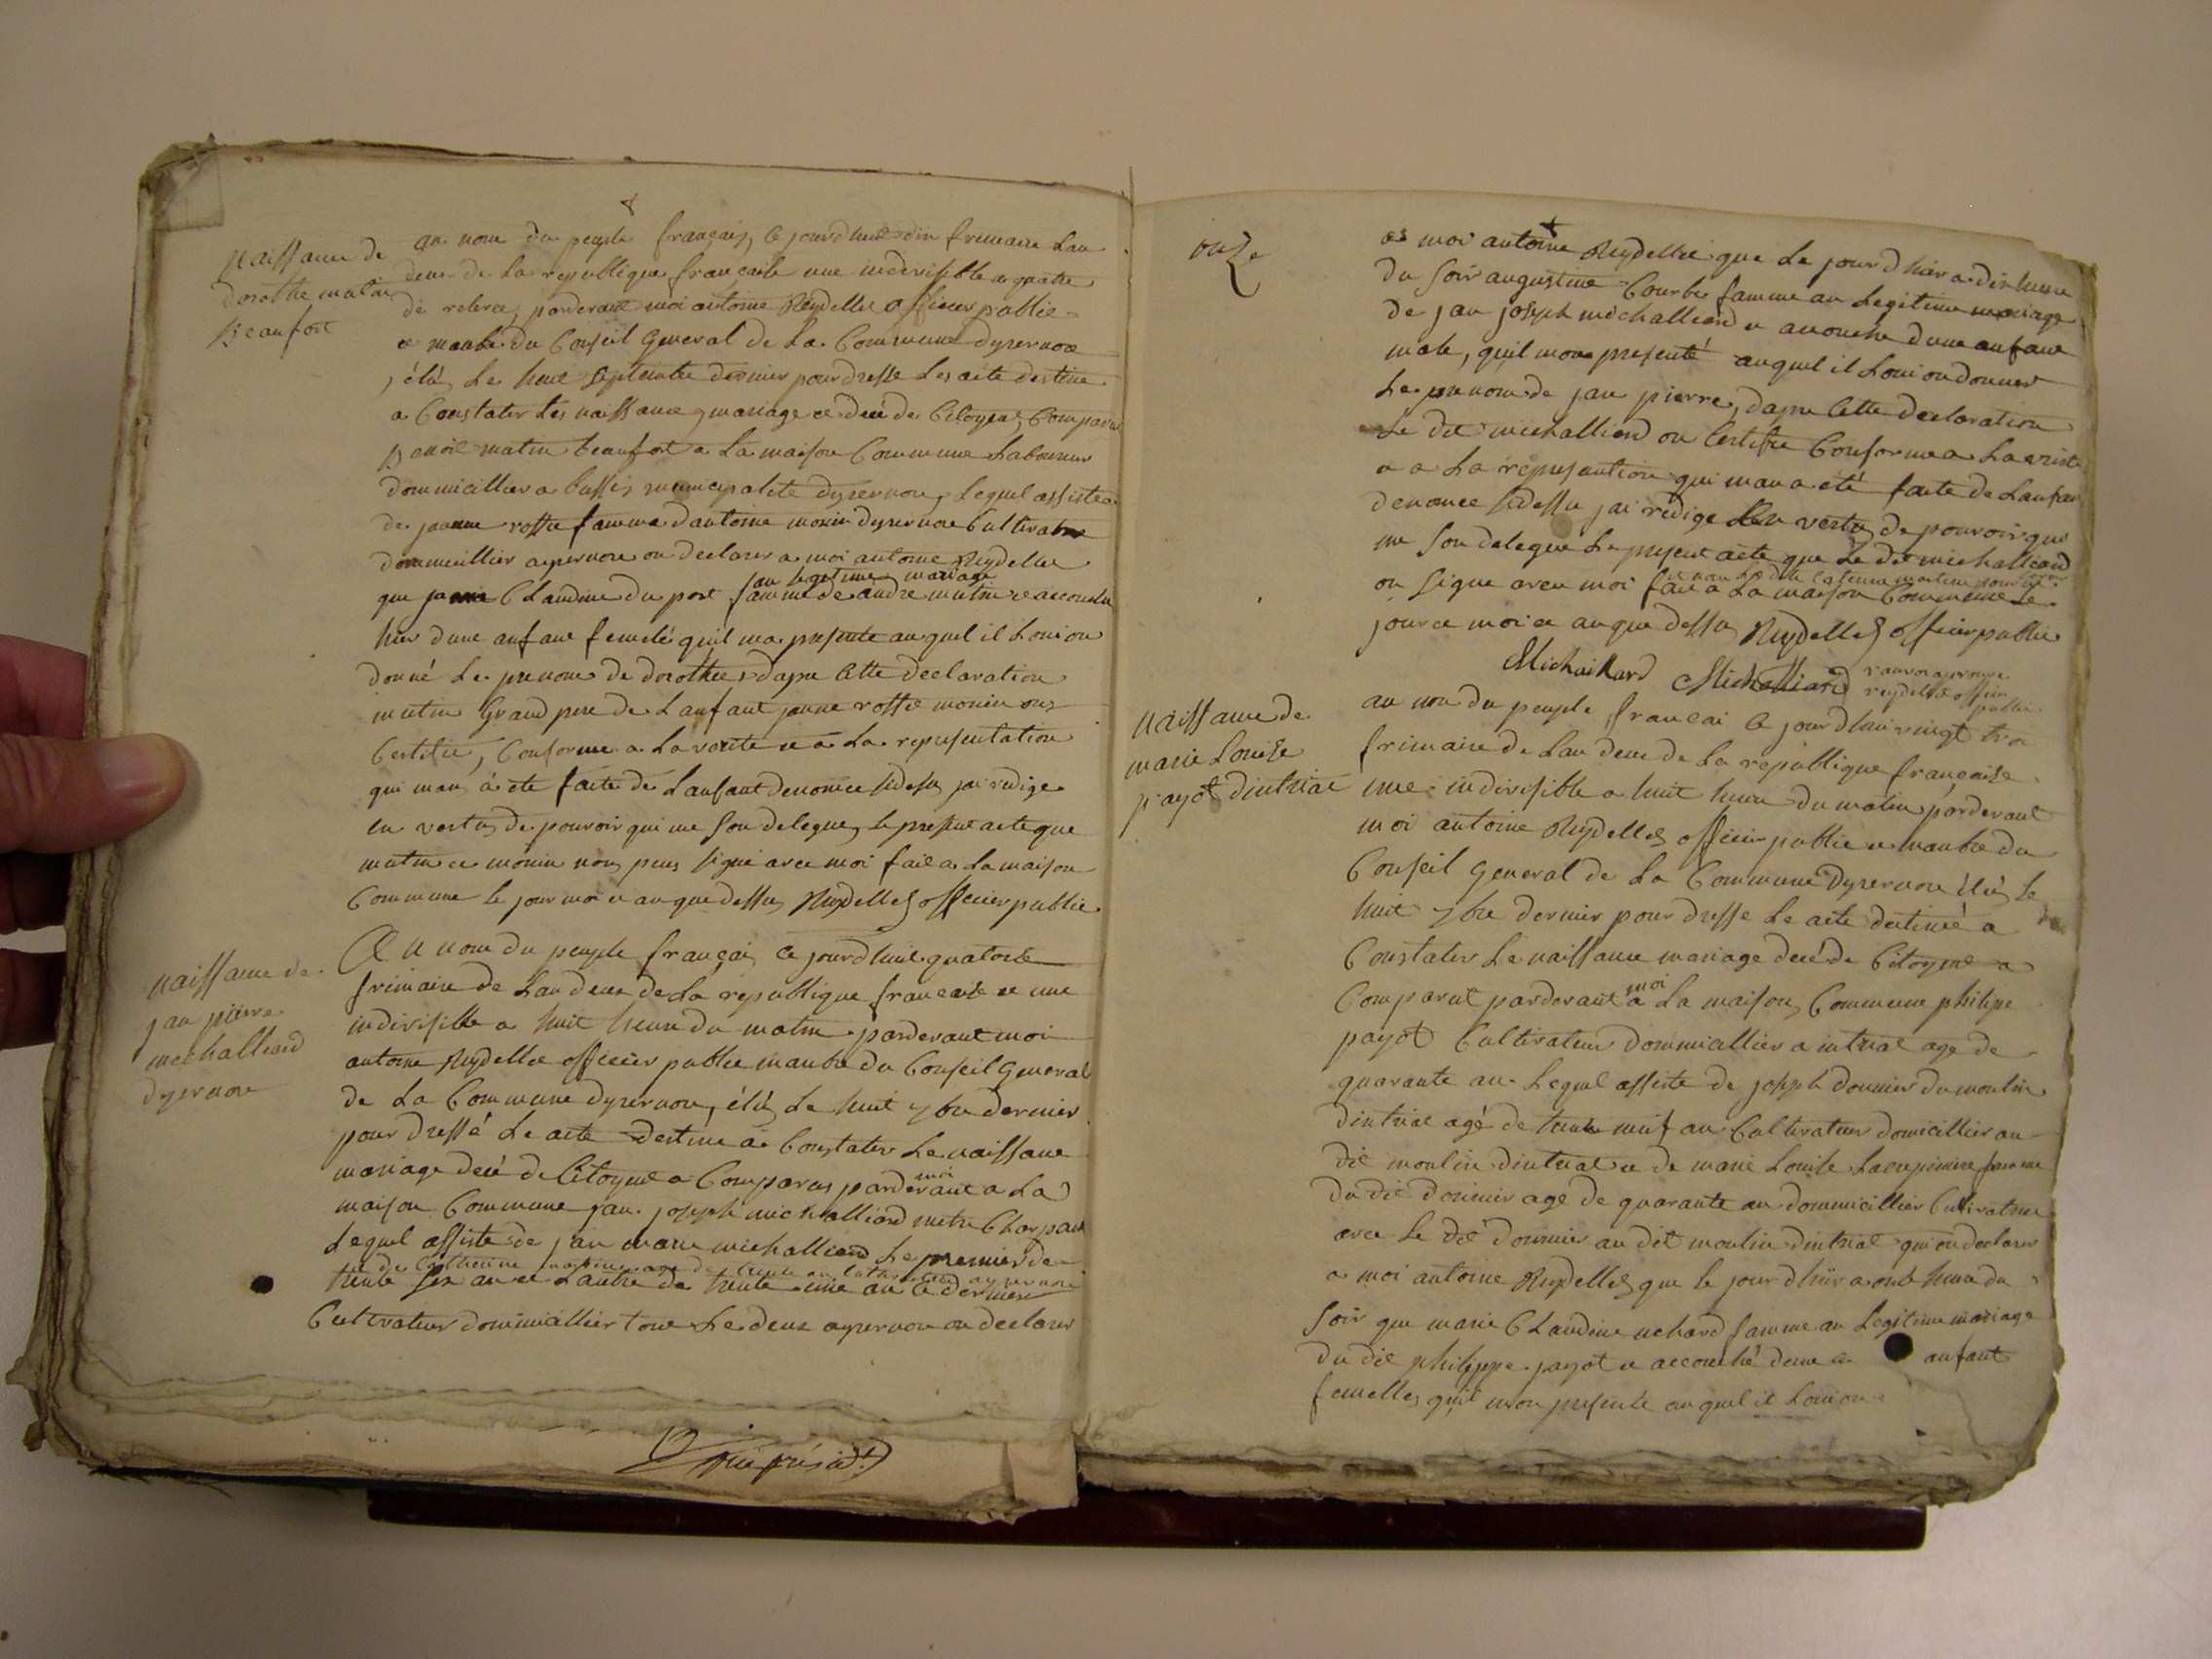 naissance de
dorothe matin
Beaufort
au nom du peuple français, ce jourdhuit dix frimaire Lan
deux de La republique française une indivisible a quatre
de releve, parderant moi antoine Reydellet officier publie
e manbe du Conseil General de La Commune dyzernore
élu, Le huit septembre dernier pour dresse Les acte destine
a Constater Les naissance, mariage et decé des Citoyens, Comparu
Benoit matin beaufort a La maison Commune Laboureur
dommicillier a bussi municipalite dyzernore, Lequel assistee
de janne rosse famme dantoine monin dyzernore Cultivatre
dommicillier ayzernore on declarer a moi antoine Reydellet
que Claudine du port famme de andre matin e accouche
au legetime mariage
hier dune anfant femelé quil ma presente auquel il Loui on
donné Le prenom de dorothee, dapre Cette declaration
matin Grand pere de Lanfant janne rosse monin ons
Certifié, Conforme a La verite e a La representation
qui man á ete faite de Lanfant denomee sidesu jai redige
en vertu de pouvoir qui me son delegue, le present acte que
matin e monin nons peus signé avec moi fait a La maison
Commune le jour moi e an que dessu Reydellet officier publie
naissance de
jan pierre
michalliard
dyzernore
Au nom du peuple français ce jourdhuit quatorze
frimaire de Lan deux de La republique francaise e une
indivisible a huit heure du matin parderant moi
antoine Reydellet officier publie manbe du Conseil General
de La Commune dyzernore, élú Le huit 7bre dernier
pour dressé Le acte destine a Constater Le naissance
mariage decé de Citoyene a Comparus parderant moi a La
maison Commune jan joseph michalliard metre Charpant
Lequel assiste de jan marie michalliard Le premier de
e de Catherine
trente six an e Lautre de trente cine an Ce dernier
Cultivateur dommicillier tous Le deux ayzernore on declarer
onze
as moi antoine Reydellet que Le jour dhier a dix heure
du soir augustine Courbe famme au Legitime mariage
de jan joseph michalliard e acouche dune anfant
male, quil mon presenté auquel il Loui on donner
Le prenom de jan pierre, dapre Cette declaration
Le dit michalliard on Certifie Conforme a La verite
e a La represantion qui man a été faite de Lanfan
denomee sidessu jai redige En vertu de pouvoir qui
me son delegue Le present acte que Le dit michalliard
on signe avec moi fait a La maison Commune Le
jour e moi e an que dessu Reydellet officier publie
Michaillard Michalliard
reydellet officier
publie
naissance de
marie Louise
payot dintriat
au non du peuple francai Ce jourdhui vingt troi
frimaire de Lan deux de La republique française
une indivisible a huit heure du matin parderant
moi antoine Reydellet officier publie e manbre du
Conseil General de La Commune Dyzernore élú Le
huit 7bre dernier pour dresse Le acte destiné a
Constater Le naissance mariage decé de Citoyene a
Comparut parderant moi a La maison Commune philipe
payot Cultivateur dommicallier a intriat age de
quarante an Lequel assiste de joseph dounier du moulin
dintriat agé de trante neuf an Cultivateur domicillier au
dit moulin dintriat e de marie Louise famme
du dit dounier age de quarante an dommicillier Cultivatrice
avec Le dit dounier au dit moulin dintriat qui on declarer
a moi antoine Reydellet que le jour dhier a onze heure du
soir que marie Claudine nehard famme au Legitime mariage
du dit philippe payot e accouché dune a anfant
femelle, quil mon presente auquel il Loui on